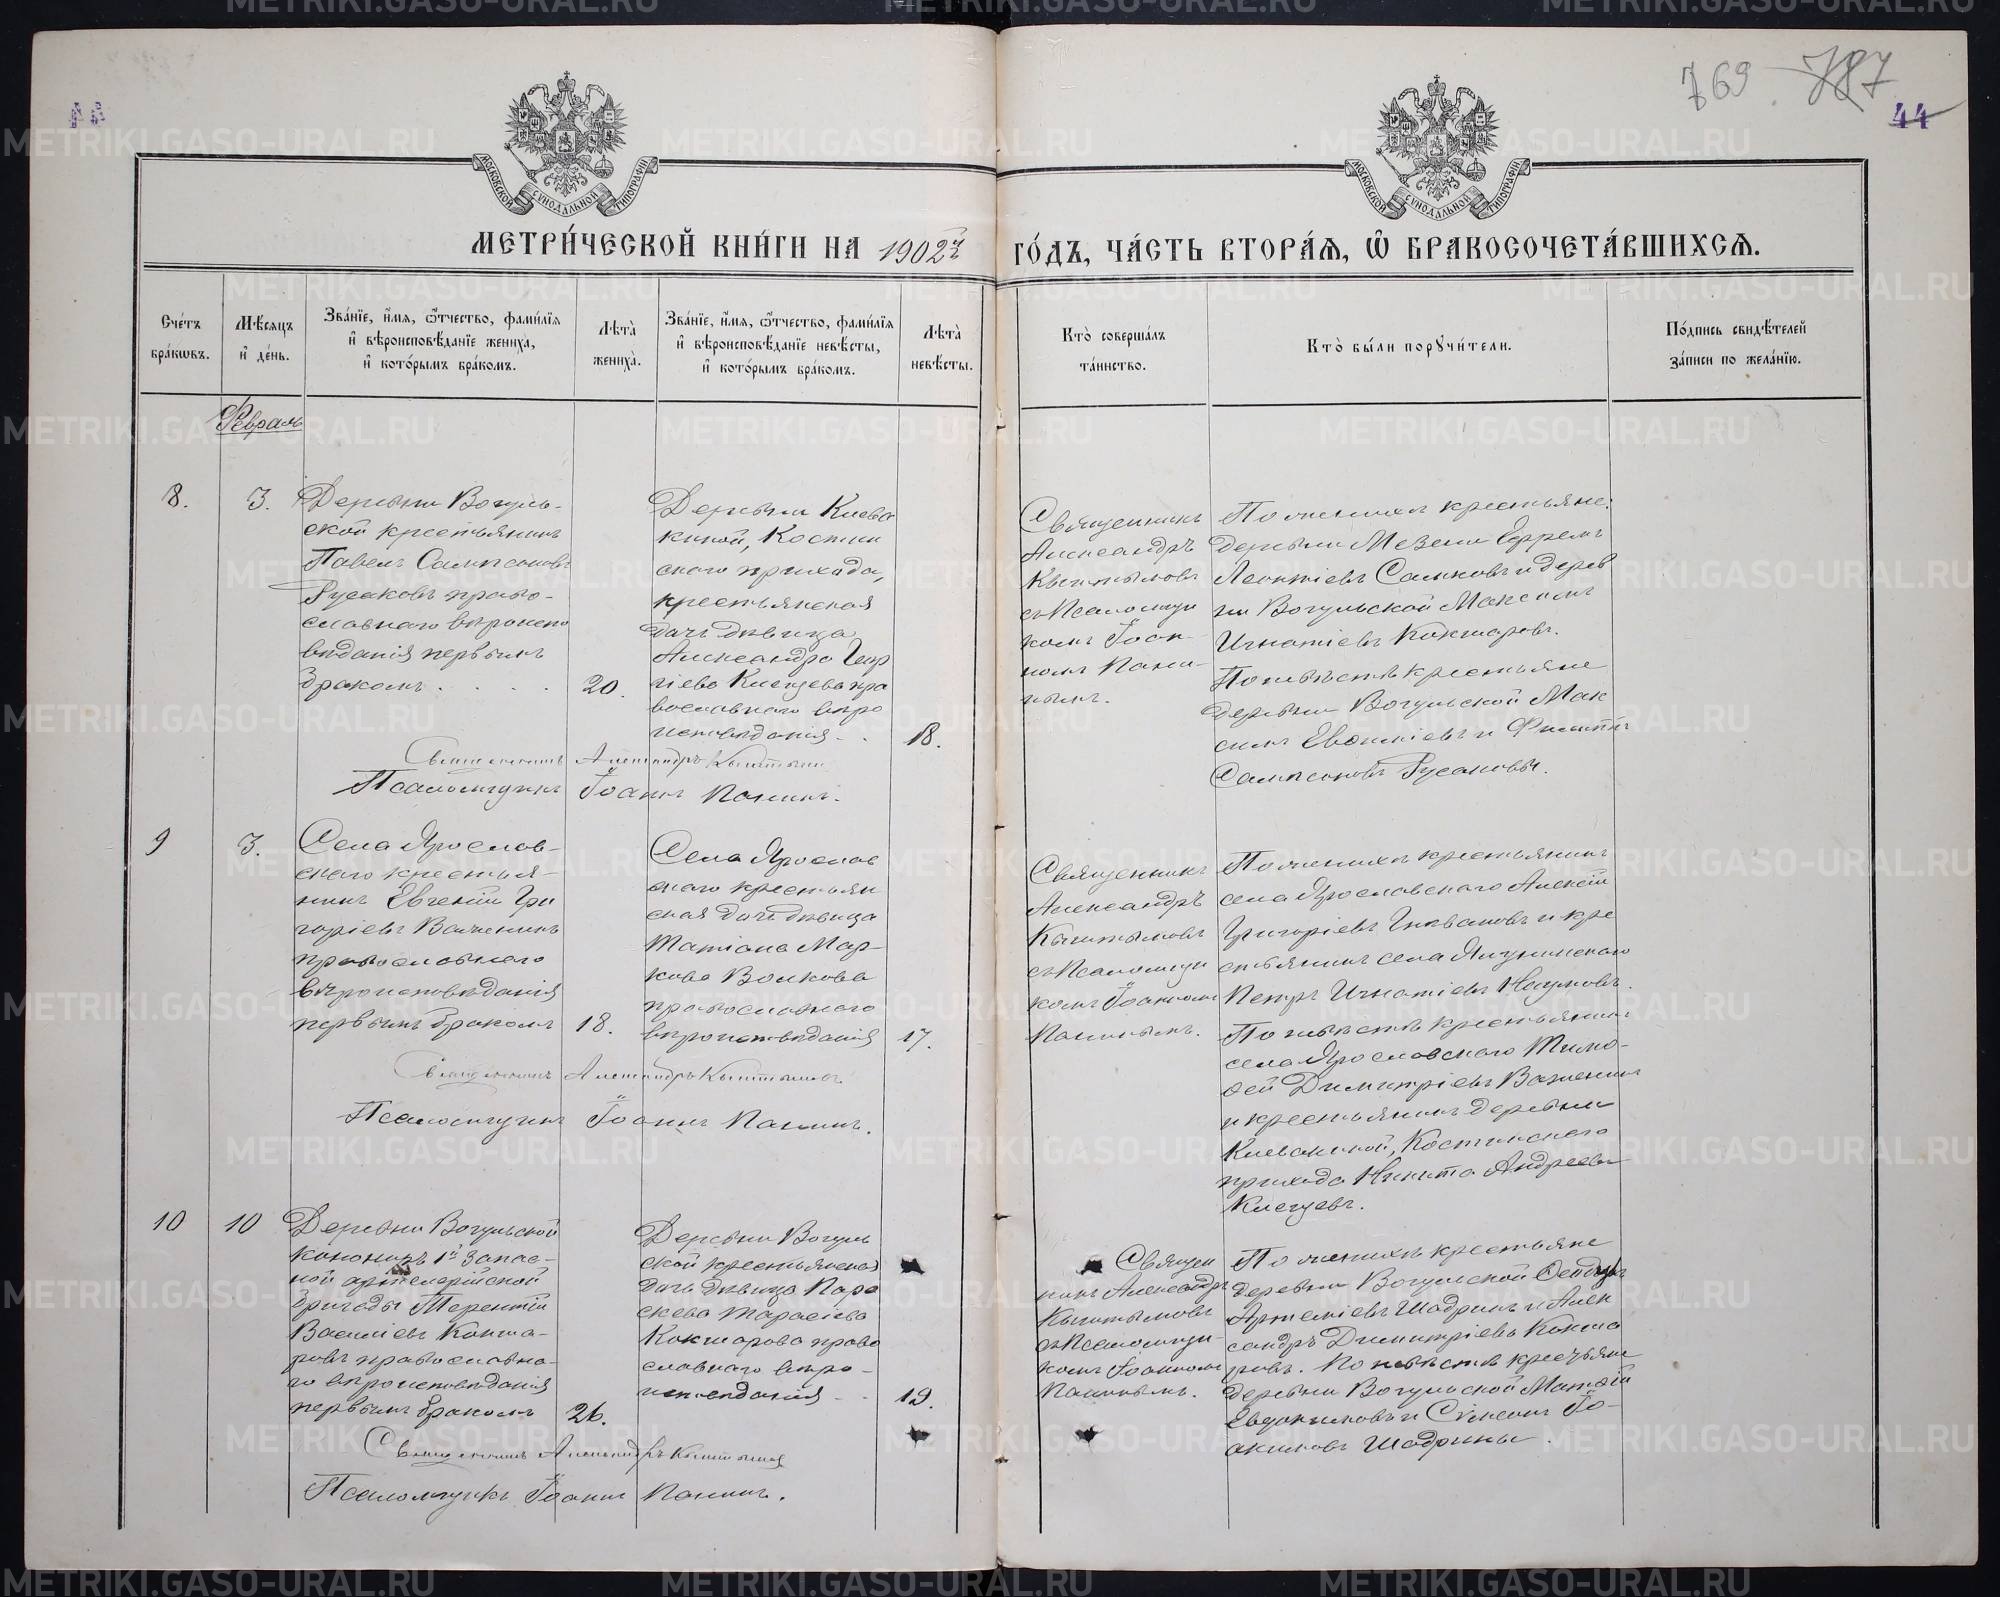 769 787
44
МОСКОВСКОЙ СѴНОДАЛЬНОЙ ТИПОГРАФІИ
МОСКОВСКОЙ СѴНОДАЛЬНОЙ ТИПОГРАФІИ
МЕТРИ́ЧЕСКОЙ КНИ́ГИ НА 1902й ГО́ДЪ, ЧА́СТЬ ВТОРА́Я, Ѡ БРАКОСОЧЕТА́ВШИХСЯ.
Сче́тъ бра́ковъ.
Мѣ́сяцъ и де́нь.
Зва́нїе, и́мя, ѻ́тчество, фами́лїя и вѣроисповѣ́данїе жениха̀, и кото́рымъ бра́комъ.
Лѣта̀ жениха̀.
Зва́нїе, и́мя, ѻ́тчество, фами́лїя и вѣроисповѣ́данїе невѣ́сты, и кото́рымъ бра́комъ.
Лѣта̀ невѣ́сты.
Кто̀ соверша́лъ та́инство.
Кто̀ бы́ли порꙋчи́тели.
По́дпись свидѣ́телей за́писи по жела́нїю.
Февраль
8.
3.
Деревни Вогуль-
ской крестьянинъ
Павелъ Сампсоновъ
Русаковъ право-
славнаго вѣроиспо
вѣданія первымъ
бракомъ . . . .
20.
Деревни Клева
киной, Костин
скаго прихода,
крестьянская
дочь дѣвица
Александра Геор
гіева Клещева пра
вославнаго вѣро
исповѣданія . .
18.
Священникъ
Александръ
Кыштымовъ
съ Псаломщи
комъ Іоан-
номъ Пани-
нымъ.
По женихѣ крестьяне:
деревни Мезени Ефремъ
Леонтіевъ Сальковъ и дерев
ни Вогульской Максимъ
Игнатіевъ Кокшаровъ.
По невѣстѣ крестьяне
деревни Вогульской Мак
симъ и Филиппъ
Сампсоновъ Русаковы.
Священникъ Александръ Кыштымовъ
Псаломщикъ Іоаннъ Панинъ.
9
3.
Села Ярослав-
скаго крестья-
нинъ Евгеній Гри
горіевъ Важенинъ
православнаго
вѣроисповѣданія
первымъ бракомъ
18.
Села Ярослав
скаго крестьян
ская дочь дѣвица
Татіана Мар-
кова Волкова
православнаго
вѣроисповѣданія
17.
Священникъ
Александръ
Кыштымовъ
съ Псаломщи
комъ Іоанномъ
Панинымъ.
По женихѣ крестьянинъ
села Ярославскаго Алексій
Григоріевъ и кре
стьянинъ села
Петръ Игнатіевъ Наумовъ.
По невѣстѣ крестьянинъ
села Ярославскаго Тимо-
ѳей Димитріевъ Важенинъ
и крестьянинъ деревни
Клевакиной, Костинскаго
прихода Никита Андреевъ
Клещевъ.
Священникъ Александръ Кыштымовъ
Псаломщикъ Іоаннъ Панинъ.
10
10
Деревни Вогульской
канониръ 1й Запас-
ной артилерійской
бригады Терентій
Василіевъ Кокша-
ровъ православна-
го вѣроисповѣданія
первымъ бракомъ
26.
Деревни Вогуль
ской крестьянская
дочь дѣвица Пара
скева Тарасіева
Кокшарова право
славнаго вѣро-
исповѣданія . .
19.
Священ
никъ Александръ
Кыштымовъ
съ Псаломщи-
комъ Іоанномъ
Панинымъ.
По женихѣ крестьяне
деревни Вогульской
Артеміевъ Шадринъ и Алек
сандръ Димитріевъ Кокша
ровъ. По невѣстѣ крестьяне
деревни Вогульской Матѳій
Евдокимовъ и Сѵмеонъ Іо-
акимовъ Шадрины.
Священникъ Александръ Кыштымовъ
Псаломщикъ Іоаннъ Панинъ.
METRIKI.GASO-URAL.RU